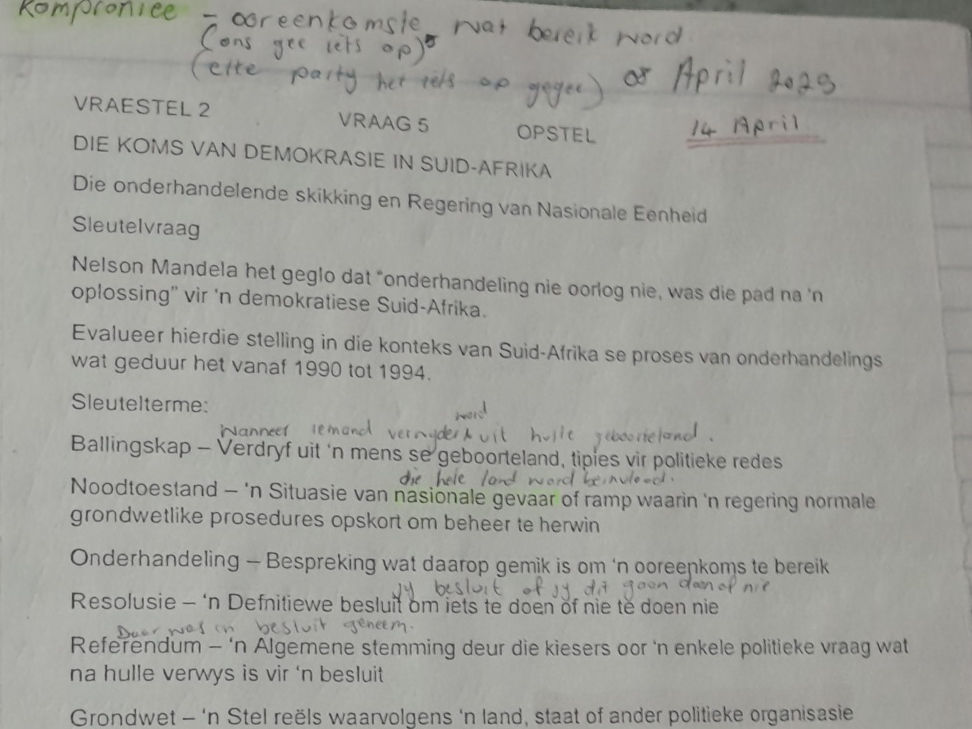 Kompromiee - ooreenkomste wat bereik word.
(ons gee iets op)
(elke party het iets op gegee) 08 April 2025
VRAESTEL 2 VRAAG 5 OPSTEL 14 April
DIE KOMS VAN DEMOKRASIE IN SUID-AFRIKA
Die onderhandelende skikking en Regering van Nasionale Eenheid
Sleutelvraag
Nelson Mandela het geglo dat “onderhandeling nie oorlog nie, was die pad na ‘n
oplossing” vir ‘n demokratiese Suid-Afrika.
Evalueer hierdie stelling in die konteks van Suid-Afrika se proses van onderhandelings
wat geduur het vanaf 1990 tot 1994.
Sleutelterme:
Wanneer iemand verwyder word uit hulle geboorteland.
Ballingskap – Verdryf uit ‘n mens se geboorteland, tipies vir politieke redes
die hele land word beinvloed.
Noodtoestand – ‘n Situasie van nasionale gevaar of ramp waarin ‘n regering normale
grondwetlike prosedures opskort om beheer te herwin
Onderhandeling – Bespreking wat daarop gemik is om ‘n ooreenkoms te bereik
jy besluit of jy dit gaan doen of nie
Resolusie – ‘n Defnitiewe besluit om iets te doen of nie te doen nie
Daar was 'n besluit geneem.
Referendum – ‘n Algemene stemming deur die kiesers oor ‘n enkele politieke vraag wat
na hulle verwys is vir ‘n besluit
Grondwet – ‘n Stel reëls waarvolgens ‘n land, staat of ander politieke organisasie